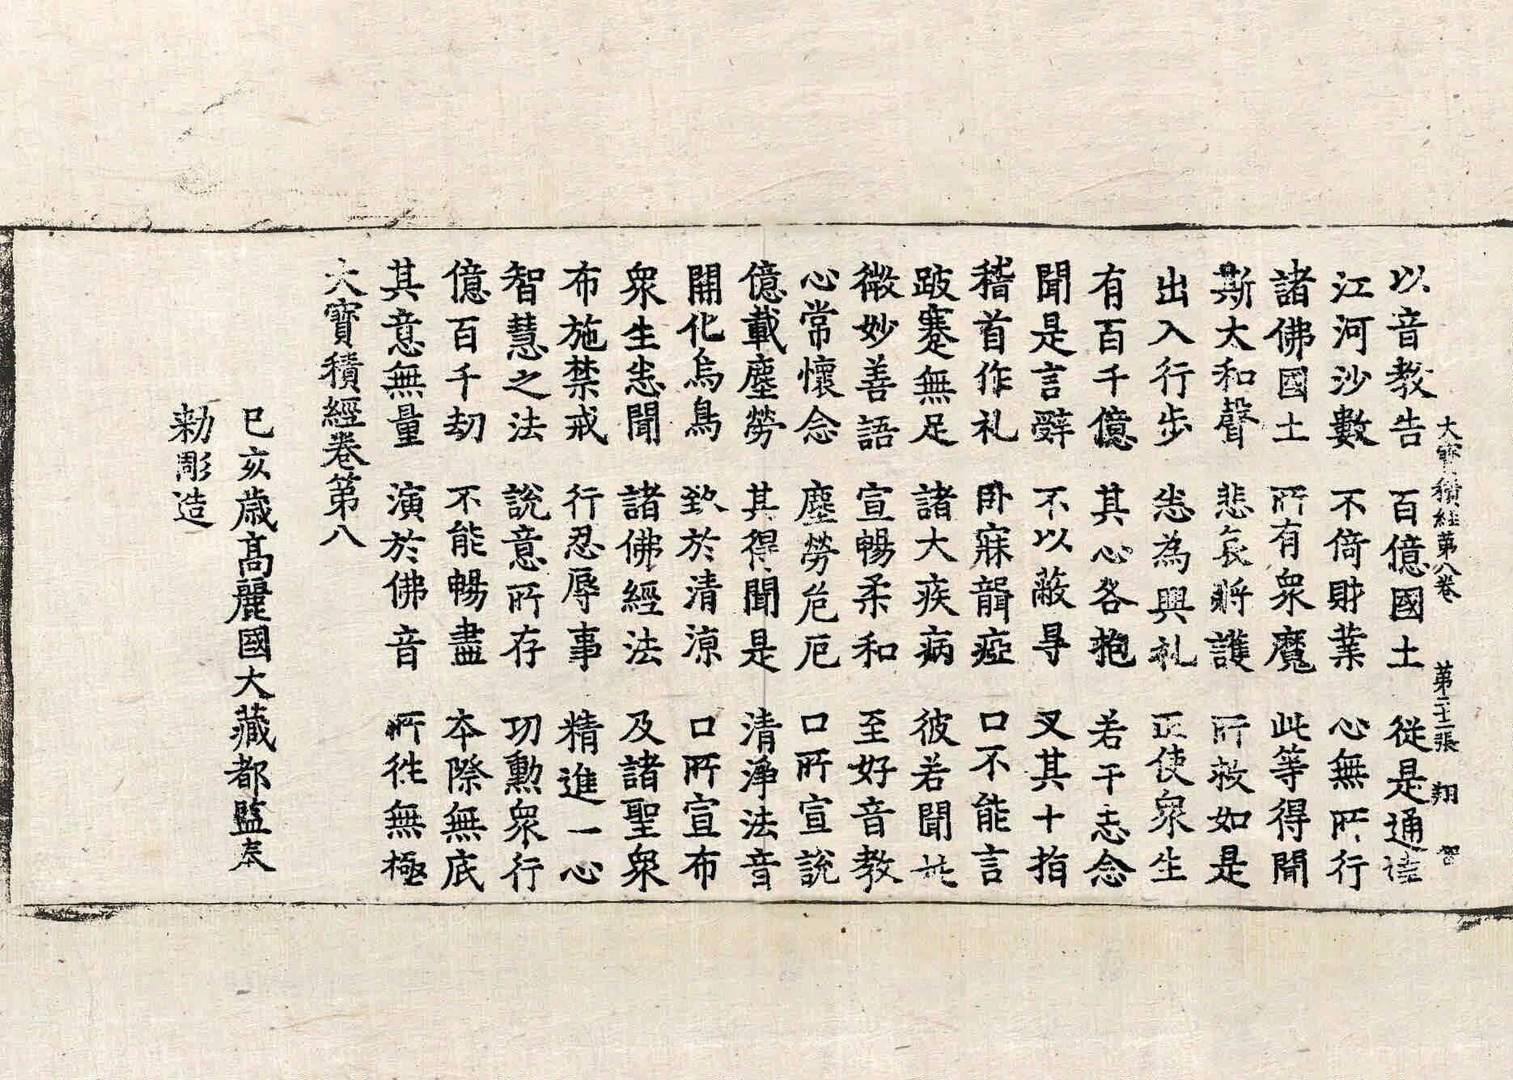 大寶積經第八卷　第二十二張　翔
以音教告　百億國土　從是通達
江河沙數　不倚財業　心無所行
諸佛國土　所有衆魔　此等得聞
斯大和聲　悲哀將護　所救如是
出入行步　悉為興礼　正使衆生
有百千億　其心各抱　若干志念
聞是言辭　不以蔽尋　叉其十指
稽首作礼　卧寐聾瘂　口不能言
跛蹇無足　諸大疾病　彼若聞此
微妙善語　宣暢柔和　至好音教
心常懷念　塵勞危厄　口所宣說
億載塵勞　其得聞是　清淨法音
開化烏鳥　致於清涼　口所宣布
衆生悉聞　諸佛經法　及諸聖衆
布施禁戒　行忍辱事　精進一心
智慧之法　說意所存　功勲衆行
億百千劫　不能暢盡　本際無底
其意無量　演於佛音　所徃無極
大寶積經卷第八
己亥歳高麗國大藏都監奉
勅彫造